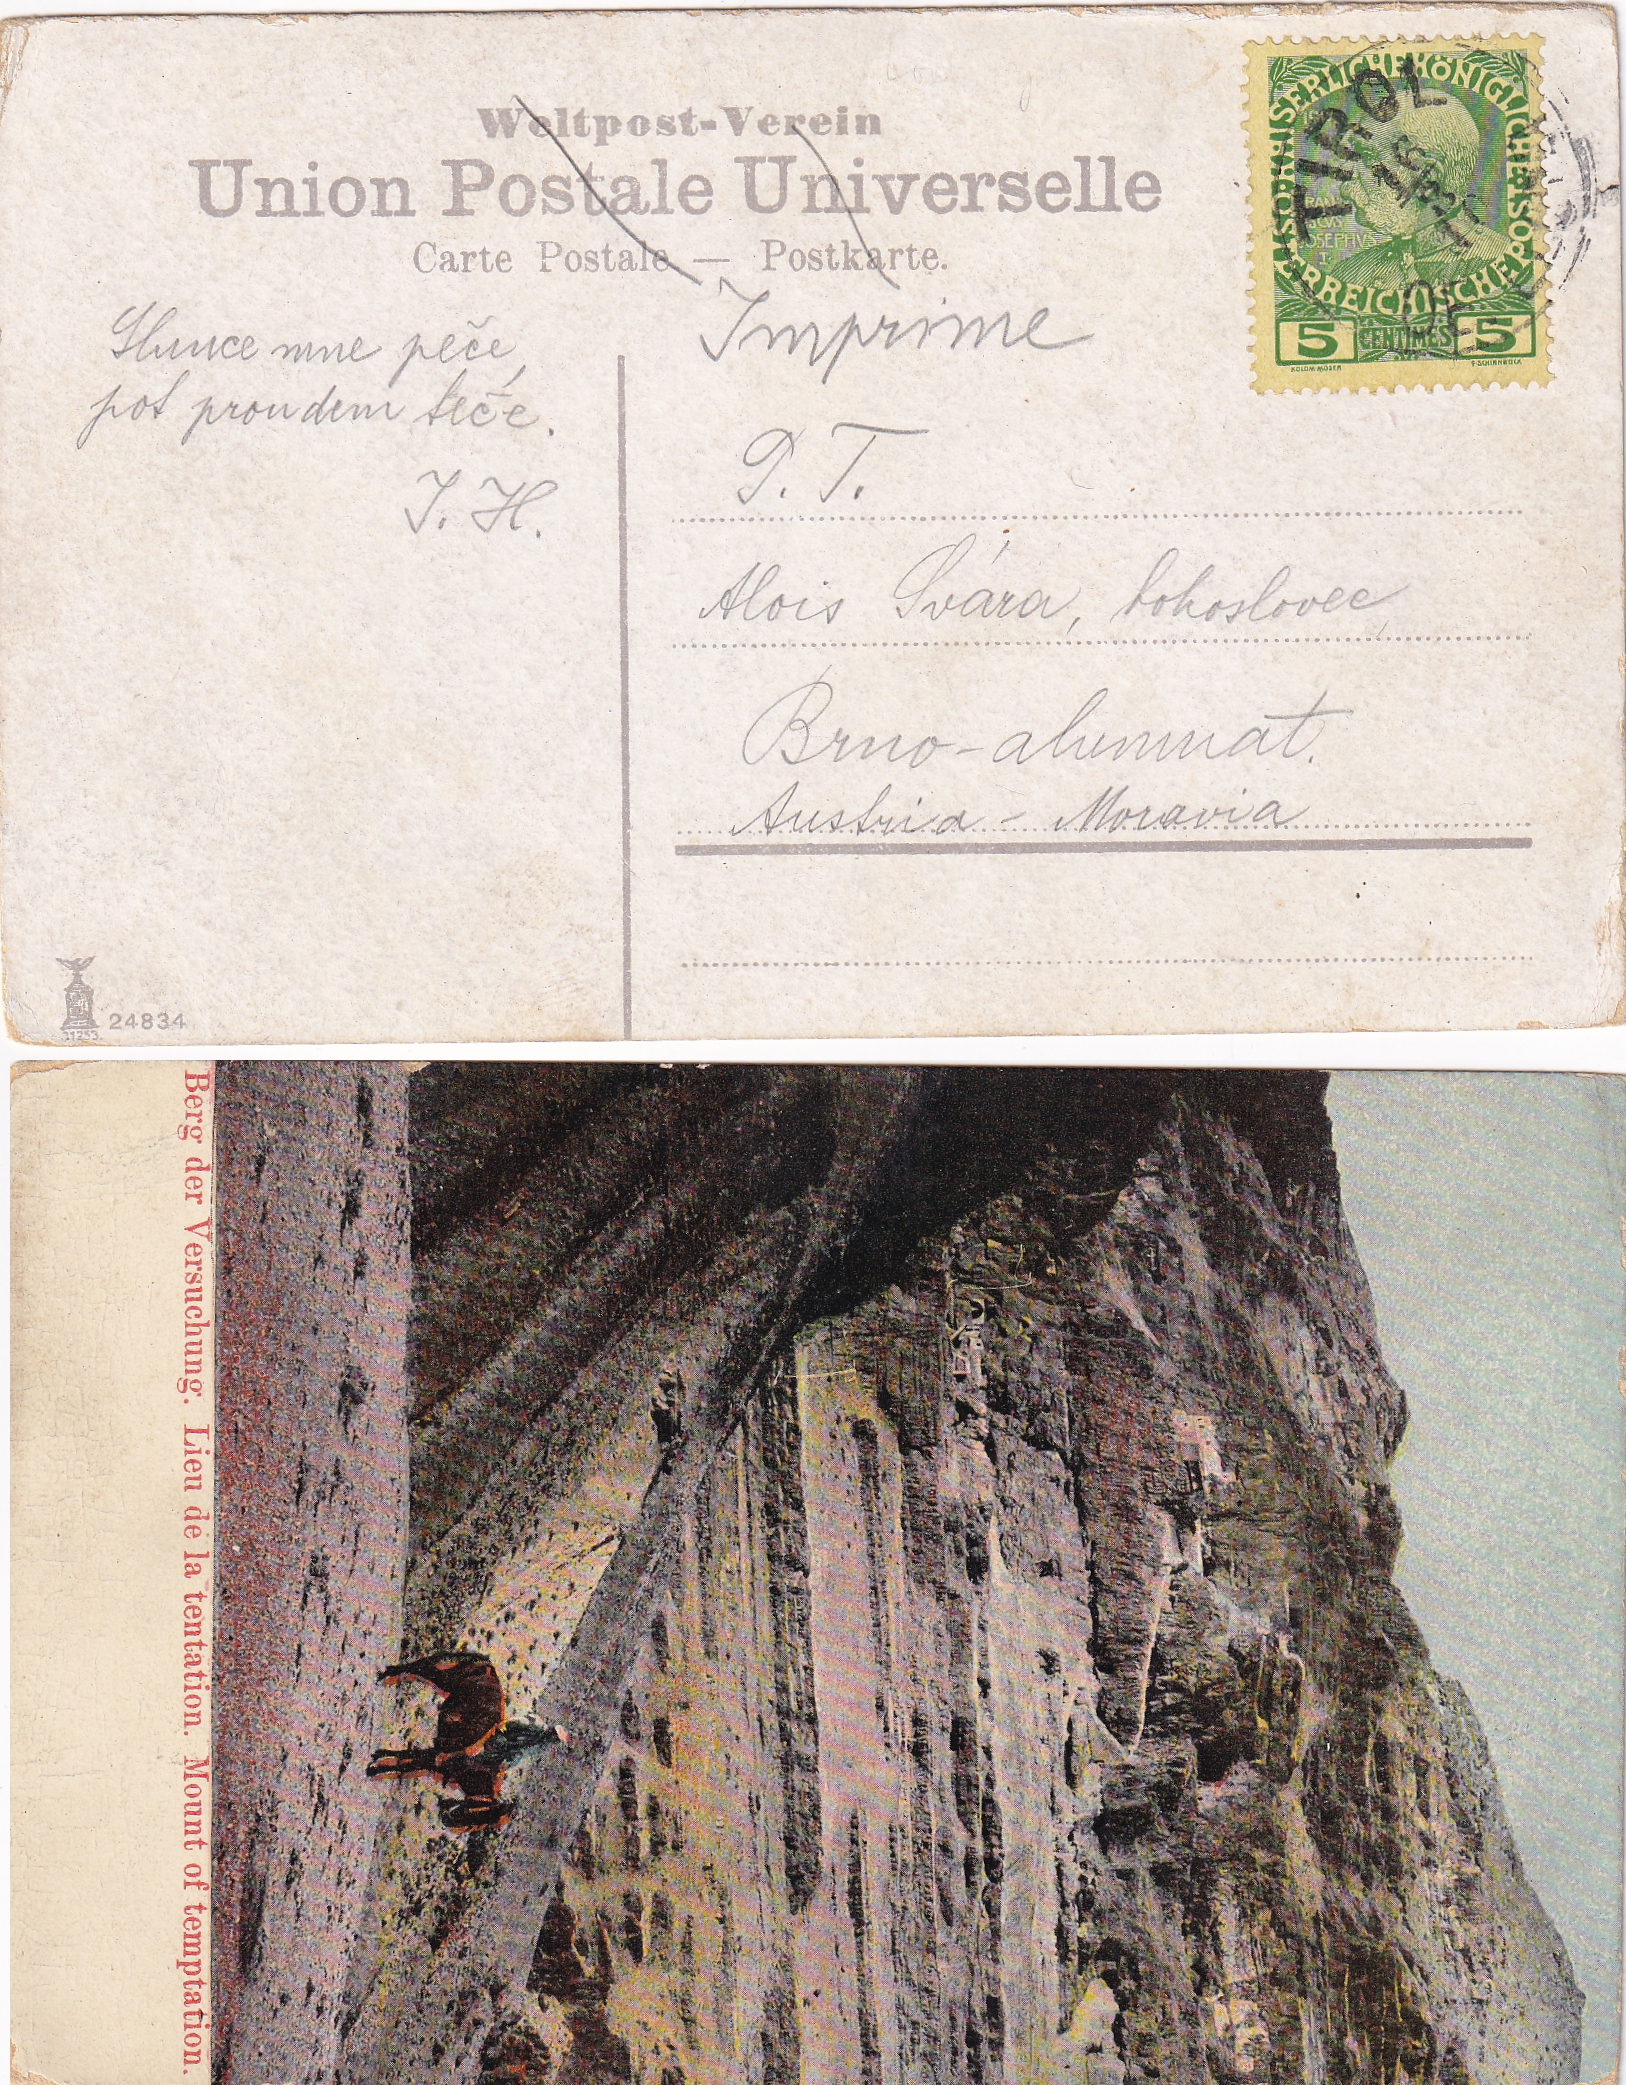 Weltpost-Verein
Union Postale Universelle
Carte Postale — Postkarte.
KAISERLICHE KÖNIGLICHE
ÖSTERREICHISCHE POST
5 CENTIMES 5
KOLOM. MOSER
F. SCHIRNBÖCK
TIROL
Imprimé
Slunce mne peče,
pot proudem teče.
J. H.
P. T.
Alois Svára, bohoslovec,
Brno-alumnat.
Austria - Moravia
24834
Berg der Versuchung. Lieu de la tentation. Mount of temptation.